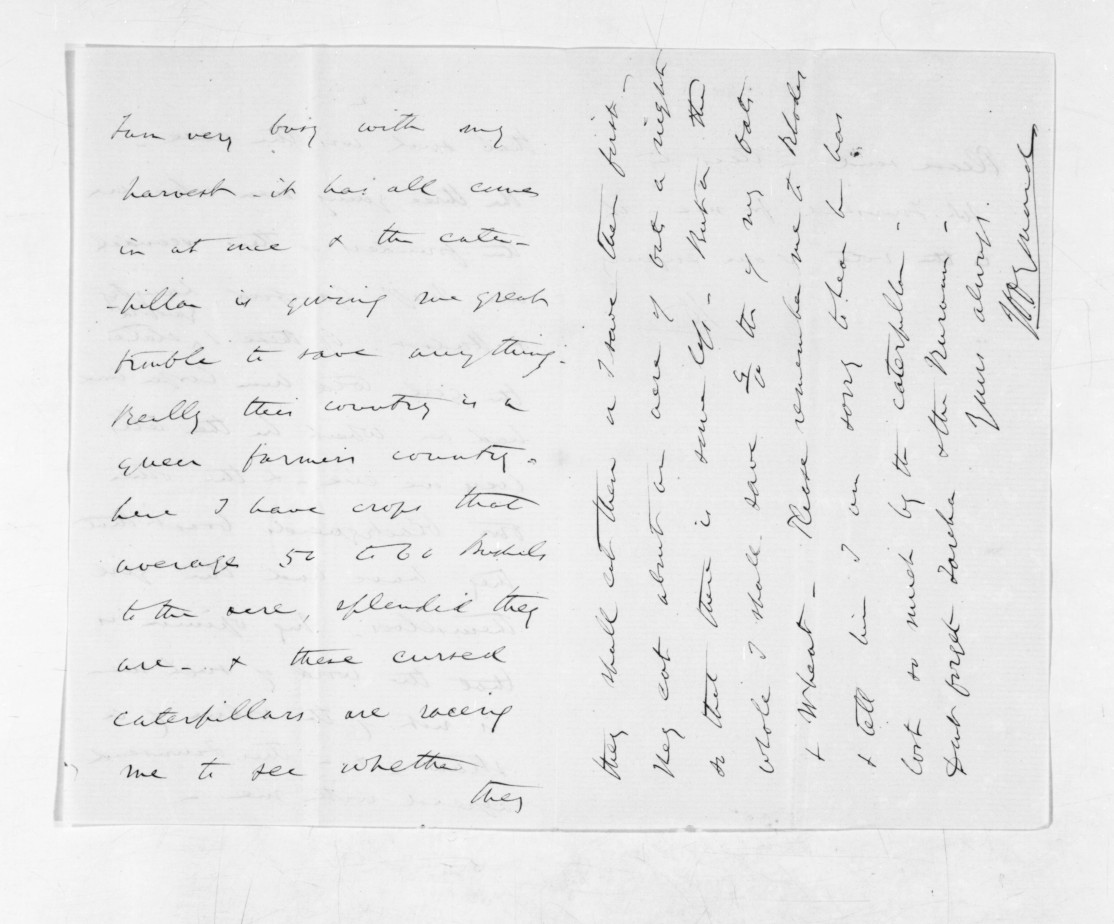 I am very busy with my
harvest it has all come
in at once & the cater-
-pillar is giving me great
trouble to save anything.
Really this country is a
queer farmers country.
here I have crops that
average 50 to 60 Bushels
to the acre, splendid they
are - & these cursed
caterpillars are racing
me to see whether
they
they shall eat them or I save them first -
they eat about an acre of oats a night
so that there is some left - But on the
whole I shall save 9/10 ths of my oats
& Wheat - Please remember me to Rhodes
& tell him I am sorry to hear he has
lost so much by the caterpillar -
Dont forget Toreha & the Muroums -
Yours always.